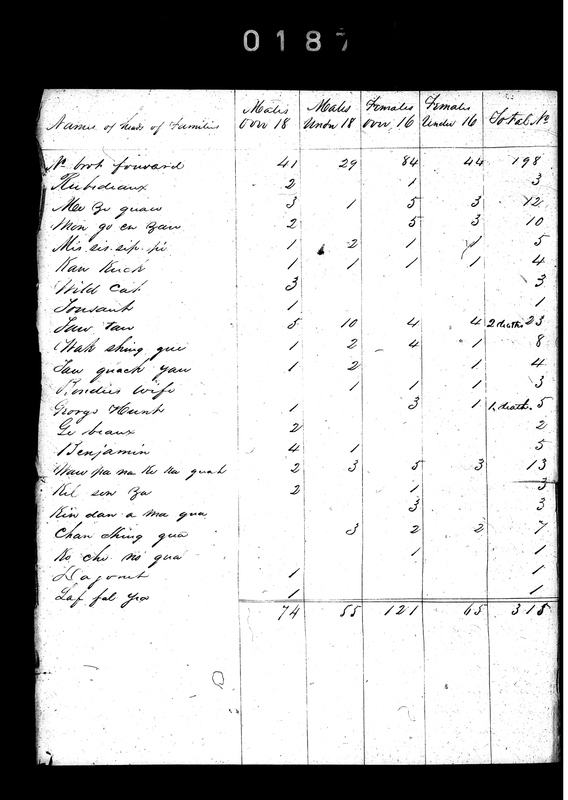 0187
Names of heads of Families | Males over 18 | Males Under 18 | Females over 16 | Females Under 16 | Total No
No brot forward 41 29 84 44 198
Rubideaux 2 1 3
Me Ze quaw 3 1 5 3 12
Mon go en Zau 2 5 3 10
Mis. sis. sip. pi 1 2 1 1 5
Kaw Kuck 1 1 1 1 4
Wild Cat 3 3
Tousant 1 1
Saw taw 5 10 4 4 2 deaths 23
Wah shing gue 1 2 4 1 8
Saw quach yau 1 2 1 4
Rondies wife 1 1 1 3
George Hunt 1 3 1 1, death. 5
Ge beaux 2 2
Benjamin 4 1 5
Waw pa na Ke ka quah 2 3 5 3 13
Kil son Za 2 1 3
Kin dan a ma qua 3 3
Chan Thing qua 3 2 2 7
Ko che no qua 1 1
Dajonet 1 1
Laf fal yea 1 1
74 55 121 65 315